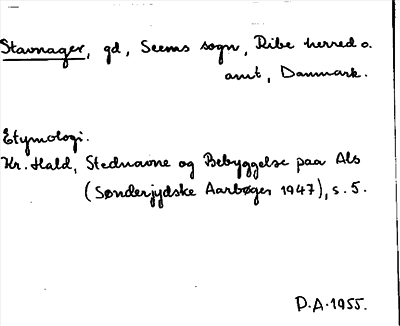 Stavnager, gd, Seems sogn, Ribe herred o.
amt, Danmark.
Etymologi.
Kr. Hald, Stednavne og Bebyggelse paa Als
(Sønderjydske Aarbøger 1947), s. 5.
P.A. 1955.